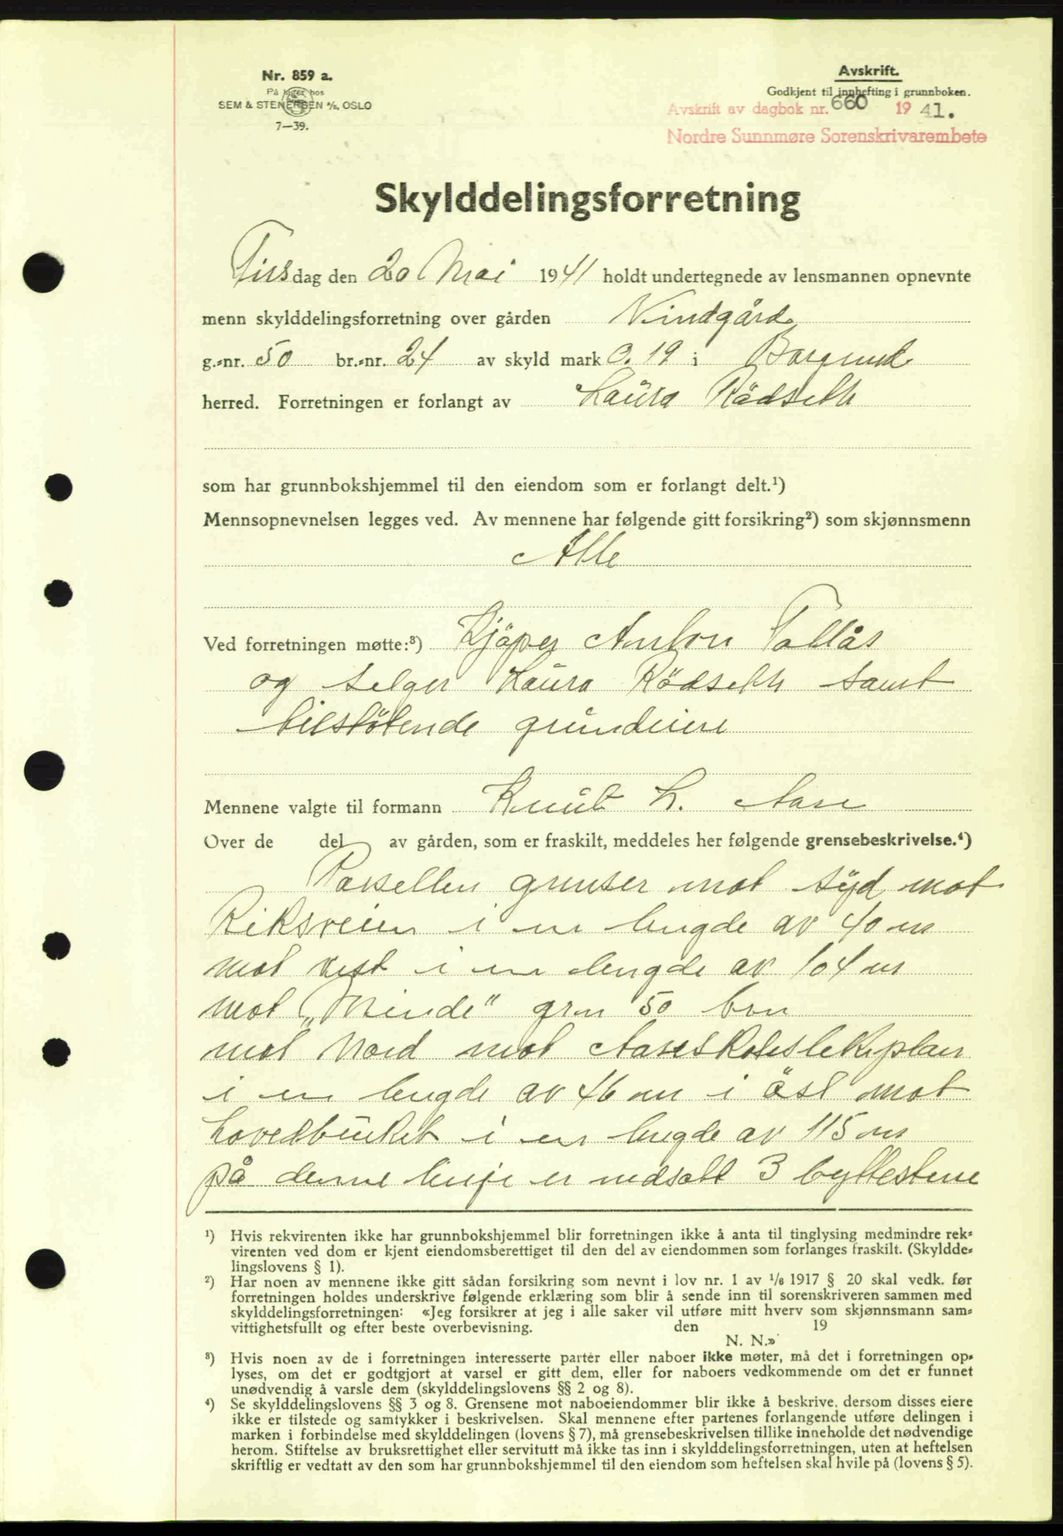 Nr. 859 a.
På lager hos
SEM & STENERSEN A/S, OSLO
7—39.
Avskrift.
Godkjent til innhefting i grunnboken.
Avskrift av dagbok nr. 660 1941.
Nordre Sunnmøre Sorenskrivarembete
Skylddelingsforretning
Tirsdag den 20 Mai 1941 holdt undertegnede av lensmannen opnevnte
menn skylddelingsforretning over gården Vindgård
g.-nr. 50 br.-nr. 24 av skyld mark 0.19 i Borgund
herred. Forretningen er forlangt av Laura Rödseth
som har grunnbokshjemmel til den eiendom som er forlangt delt.¹)
Mennsopnevnelsen legges ved. Av mennene har følgende gitt forsikring²) som skjønnsmenn
Alle
Ved forretningen møtte:³) Kjöper Anton Tollås
og selger Laura Rödseth samt
tilstøtende grundeiere
Mennene valgte til formann Knut L. Aase
Over de del av gården, som er fraskilt, meddeles her følgende grensebeskrivelse.⁴)
Parsellen grenser mot syd mot
Riksveien i en lengde av 40 m
mot vest i en lengde av 104 m
mot „Minde" grn 50 brn
mot Nord mot Aaseskoleslekeplan
i en lengde av 46 m i öst mot
hovedbruket i en lengde av 115 m
på denne linje er nedsatt 3 byttestene
¹) Hvis rekvirenten ikke har grunnbokshjemmel blir forretningen ikke å anta til tinglysing medmindre rek-
virenten ved dom er kjent eiendomsberettiget til den del av eiendommen som forlanges fraskilt. (Skyldde-
lingslovens § 1).
²) Har noen av mennene ikke gitt sådan forsikring som nevnt i lov nr. 1 av ¹/₆ 1917 § 20 skal vedk. før
forretningen holdes underskrive følgende erklæring som blir å sende inn til sorenskriveren sammen med
skylddelingsforretningen: «Jeg forsikrer at jeg i alle saker vil utføre mitt hverv som skjønnsmann sam-
vittighetsfullt og efter beste overbevisning. den 19
N. N.»
³) Hvis noen av de i forretningen interesserte parter eller naboer ikke møter, må det i forretningen op-
lyses, om det er godtgjort at varsel er gitt dem, eller for naboers vedkommende om det er funnet
unødvendig å varsle dem (skylddelingslovens §§ 2 og 8).
⁴) Se skylddelingslovens §§ 3 og 8. Grensene mot naboeiendommer blir ikke å beskrive, dersom disses eiere
ikke er tilstede og samtykker i beskrivelsen. Skal mennene efter partenes forlangende utføre delingen i
marken i forbindelse med skylddelingen (lovens § 7), må grensebeskrivelsen tillike inneholde det nødvendige
herom. Stiftelse av bruksrettighet eller servitutt må ikke tas inn i skylddelingsforretningen, uten at heftelsen
skriftlig er vedtatt av den som har grunnbokshjemmel til den eiendom som heftelsen skal hvile på (lovens § 5).